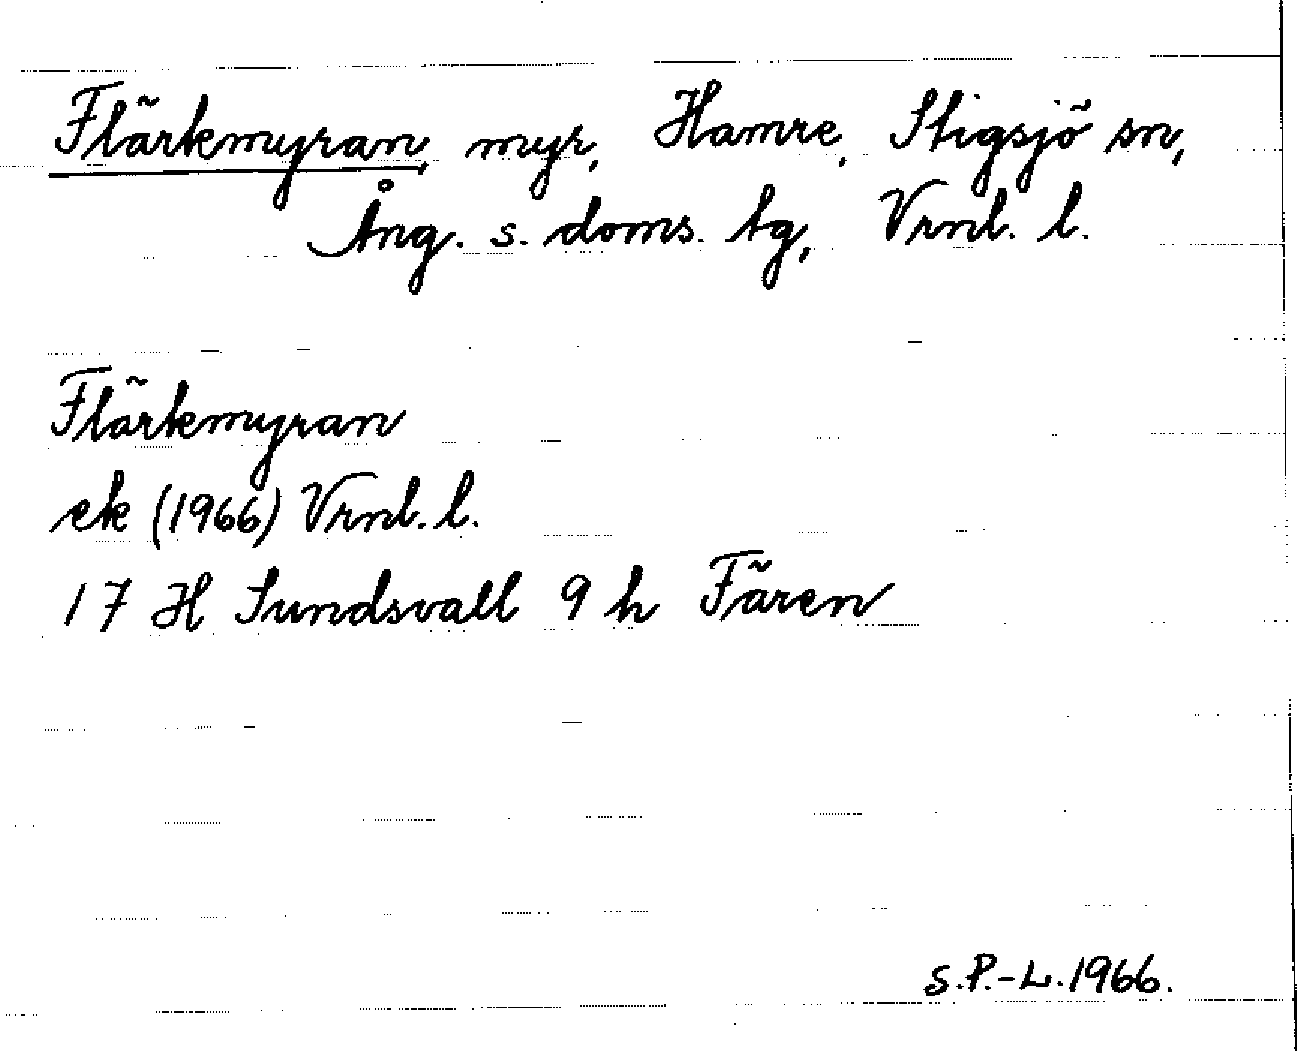 Flärkemyran, myr, Hamre, Stigsjö sn,
Ång. s. doms. tg, Vrnl. l.
Flärkemyran
ek (1966) Vrnl. l.
17 H Sundsvall 9 h Fären
S.P.-L. 1966.